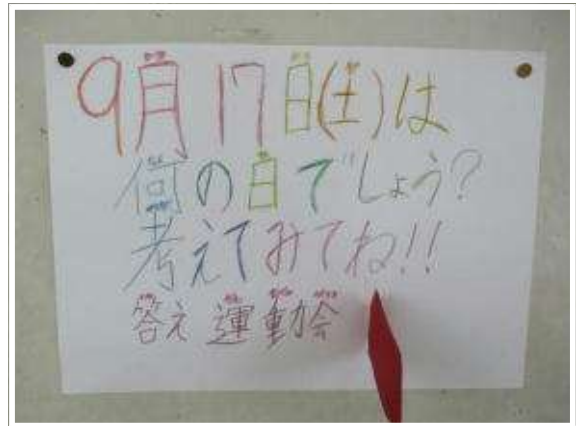 9月17日(土)は
何の日でしょう?
考えてみてね!!
答え 運動会